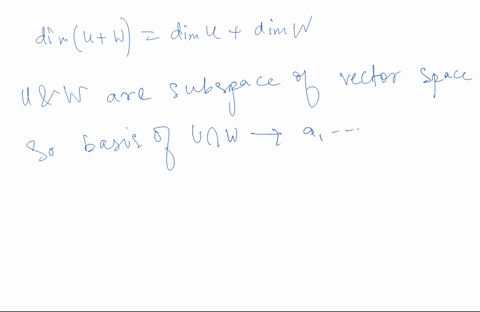 dim(U+W) = dim U + dim W
U & W are subspace of vector space
So basis of U∩W → a, ---